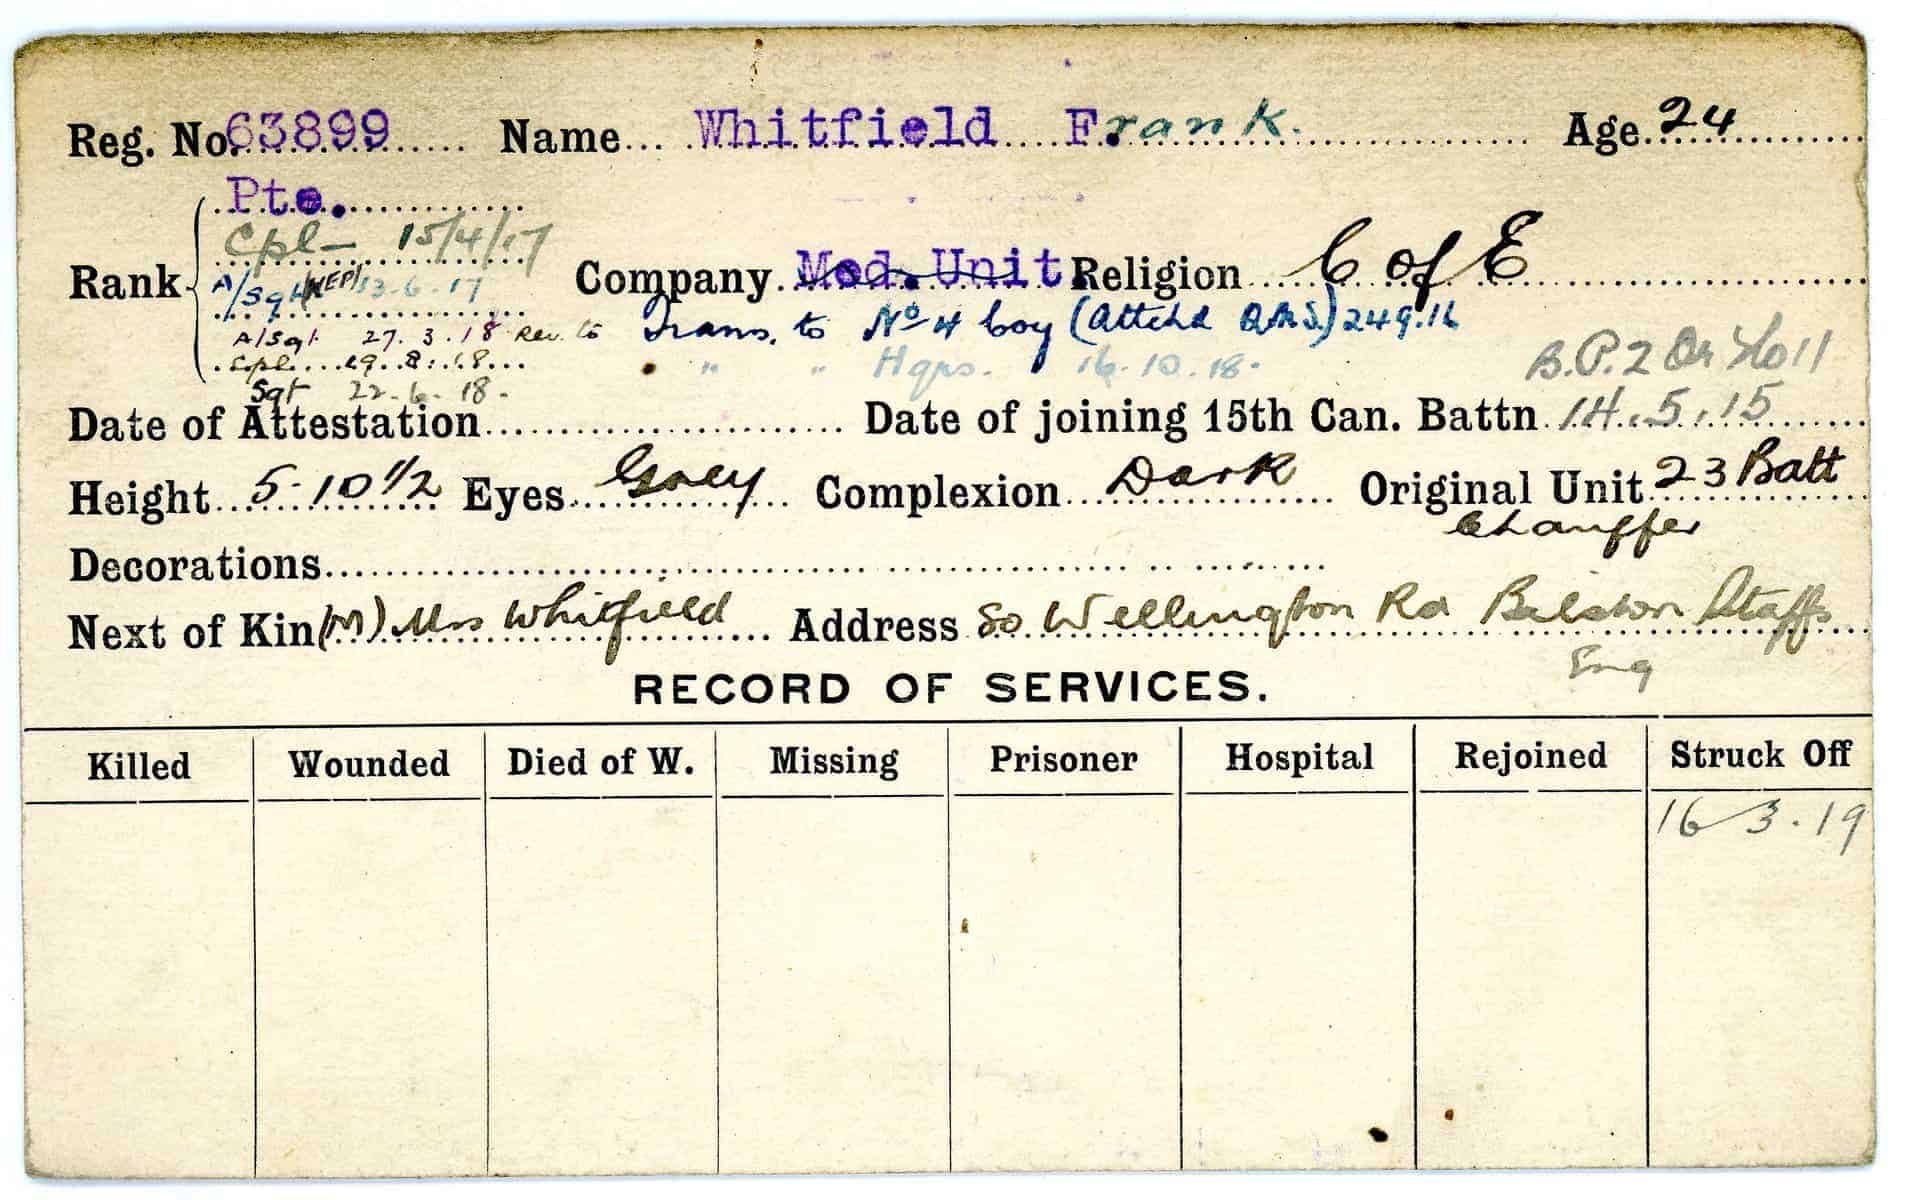 Reg. No. 63899 Name Whitfield Frank. Age 24
Pte.
Cpl - 15/4/17
Rank A/Sgt 13-6-17 Company Med. Unit Religion C of E
A/Sgt 27.3.18 Rev. to Trans. to No 4 Coy (Attchd Q.M.S.) 24 9.16
Cpl. 19.8.18 " " Hqrs. 16-10-18. B.P. 2 Or
Sgt 22-6-18.
Date of Attestation Date of joining 15th Can. Battn 14.5.15
Height 5-10 1/2 Eyes Grey Complexion Dark Original Unit 23 Batt
Chauffer
Decorations
Next of Kin (M) Mrs Whitfield Address 50 Wellington Rd Bilston Staffs
Eng
RECORD OF SERVICES.
Killed Wounded Died of W. Missing Prisoner Hospital Rejoined Struck Off
16-3.19